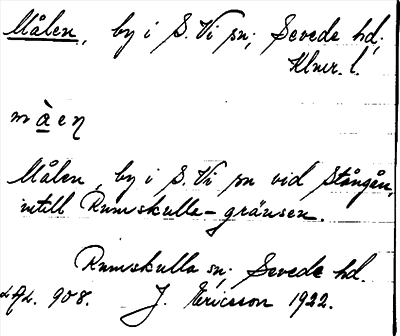 Målen, by i S. Vi sn; Sevede hd;
Klmr. l.
màeꞑ
Målen, by i S. Vi sn vid Stångån,
intill Rumskulla-gränsen.
Rumskulla sn; Sevede hd.
908. J. Ericsson 1922.